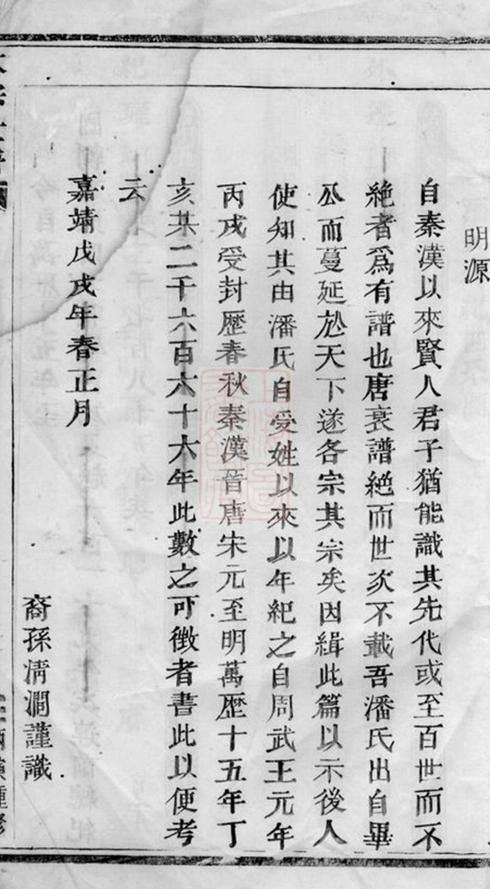 明源
自秦漢以來賢人君子猶能識其先代或至百世而不
絶者爲有譜也唐衰譜絶而世次不載吾潘氏出自畢
公而蔓延於天下遂各宗其宗矣因緝此篇以示後人
使知其由潘氏自受姓以來以年紀之自周武王元年
丙戌受封歷春秋秦漢晉唐宋元至明萬歷十五年丁
亥某二千六百六十六年此數之可徵者書此以便考
云
嘉靖戊戌年春正月
裔孫清澗謹識